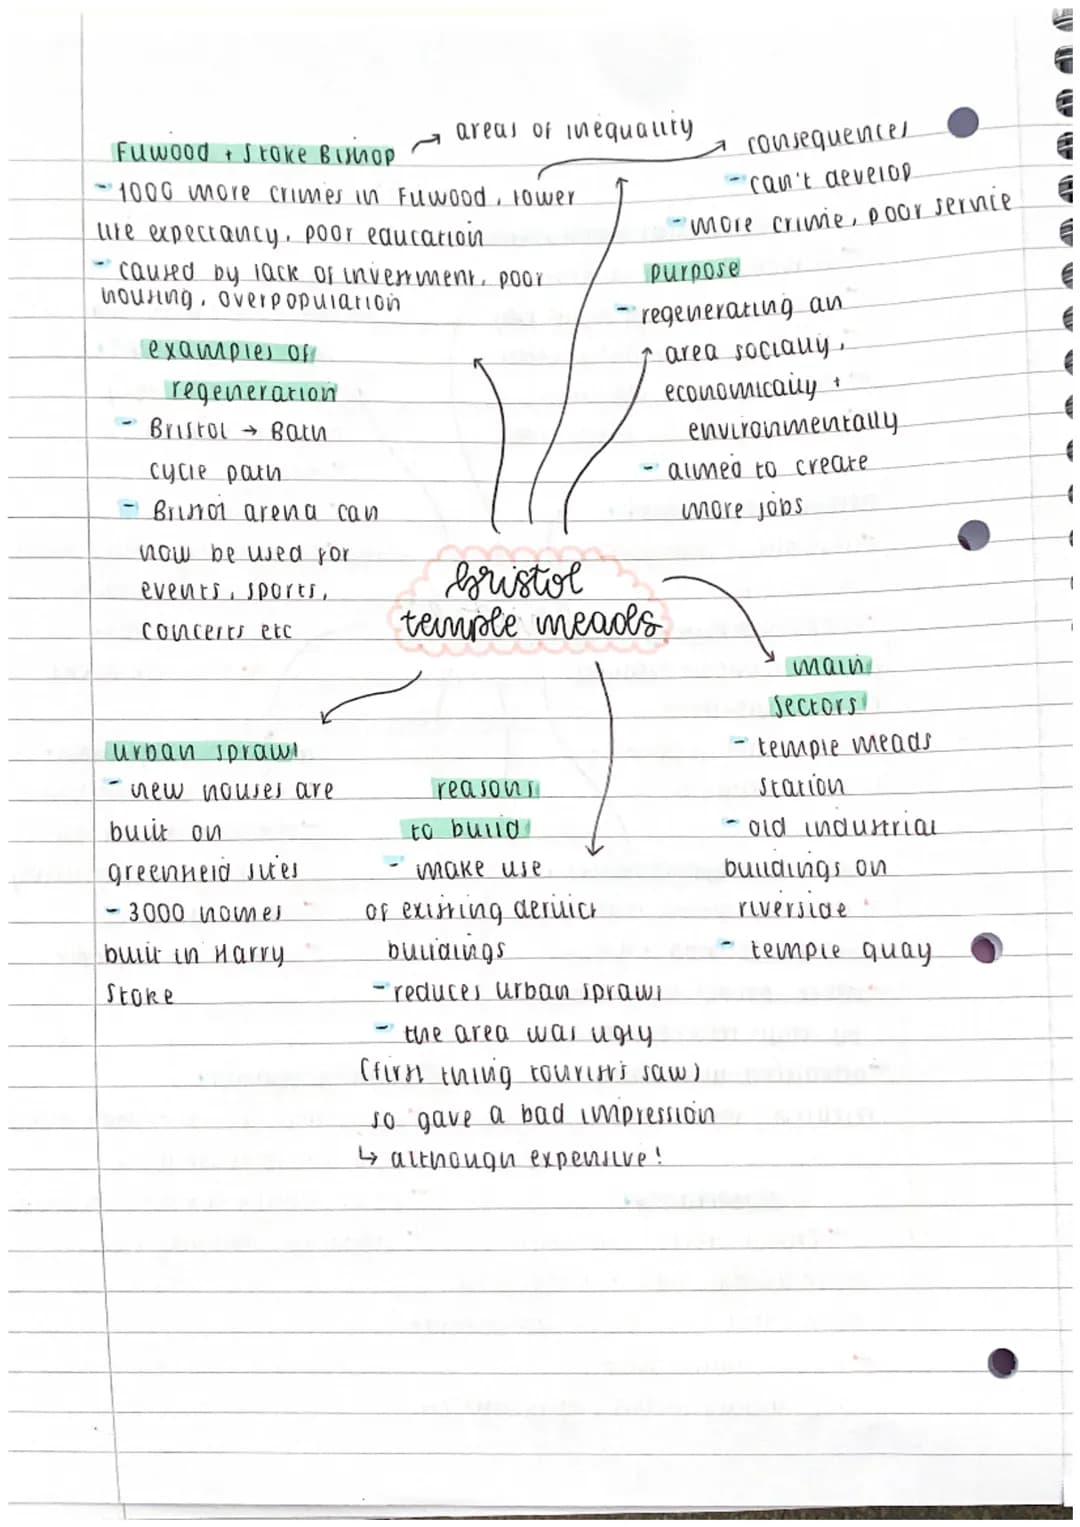 areas of inequality
Fuwood + Stoke Bishop
- 1000 more crimes in Fuwood, lower
life expectancy, poor education
- caused by lack of investment, poor
housing, overpopulation
consequences
- can't develop
- more crime, poor service
purpose
- regenerating an
area socially,
economically +
environmentally
- aimed to create
more jobs
examples of
regeneration
- Bristol → Bath
cycle path
- Bristol arena can
now be used for
events, sports,
concerts etc
bristol
temple meads
main
sectors
- temple meads
station
- old industrial
buildings on
riverside
- temple quay
urban sprawl
- new houses are
built on
greenfield sites
- 3000 homes
built in Harry
Stoke
reasons
to build
- make use
of existing derilict
buildings
- reduces urban sprawl
- the area was ugly
(first thing tourists saw)
so gave a bad impression
↳ although expensive!